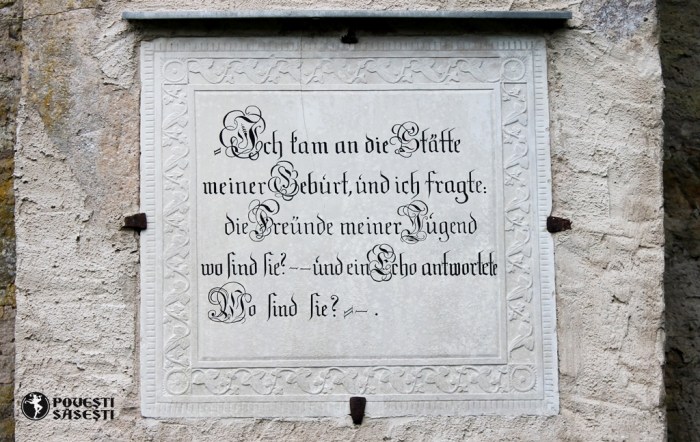 „Ich kam an die Stätte
meiner Gebúrt, únd ich fragte:
die Freúnde meiner Júgend
wo sind sie? –– únd ein Echo antwortete
Wo sind sie? „– .
POVEȘTI
SĂSEȘTI